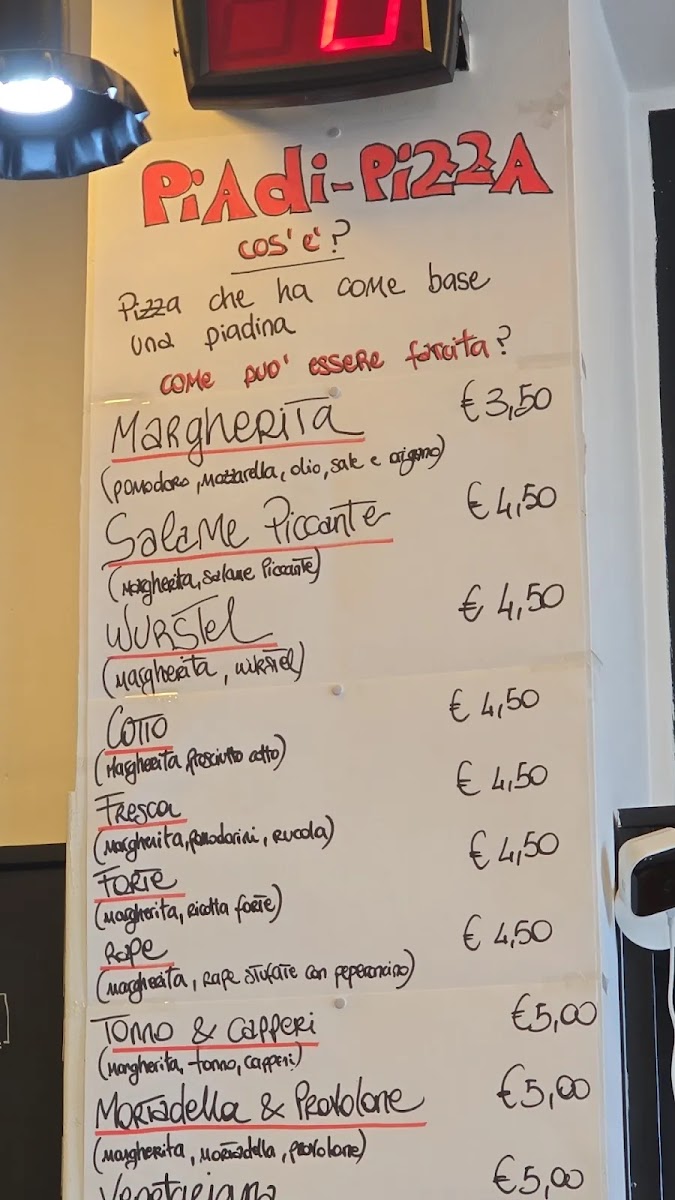 PiAdi-Pizza
cos' e'?
Pizza che ha come base
una piadina
come puo' essere farcita?
Margherita € 3,50
(pomodoro, mozzarella, olio, sale e origano)
Salame Piccante € 4,50
(Margherita, Salame Piccante)
Wurstel € 4,50
(Margherita, wurstel)
Cotto € 4,50
(Margherita prosciutto cotto)
Fresca € 4,50
(Margherita, pomodorini, rucola)
Forte € 4,50
(Margherita, ricotta forte)
Rape € 4,50
(Margherita, rape stufate con peperoncino)
Tonno & Capperi € 5,00
(Margherita, tonno, capperi)
Mortadella & Provolone € 5,00
(Margherita, Mortadella, provolone)
Vegetariana € 5,00